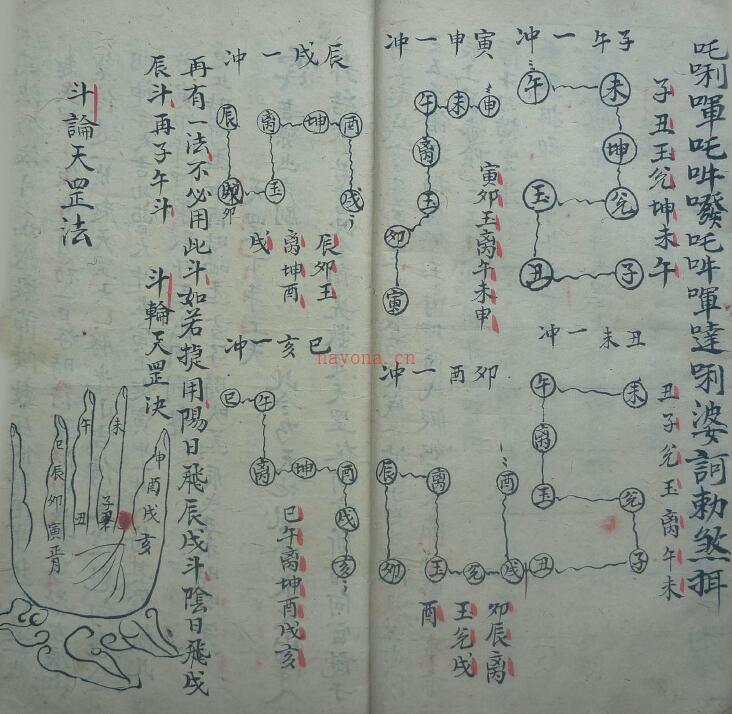 吒唎喗吒吽吒吽喗達唎婆訶勅煞
子午一冲
未 午
坤
兊 玉
子 丑
子丑玉兊坤未午
丑未一冲
未 午
离
兊 玉
子 丑
丑子兊玉离午未
寅申一冲
申 未 午
离
玉
卯
寅
寅卯玉离午未申
卯酉一冲
酉 离 辰
戌 兊 玉 卯
卯辰离
玉兊戌
酉
辰戌一冲
酉 坤 离 辰
戌 玉 卯
辰卯玉
离坤酉
戌
巳亥一冲
午 巳
酉 坤 离
戌
亥
巳午离坤酉戌亥
再有一法不必用此斗如若捷用陽日飛辰戌斗陰日飛戌
辰斗再子午斗
斗輪天罡决
斗論天罡法
申酉戌亥
未
子
午
丑
巳辰卯寅